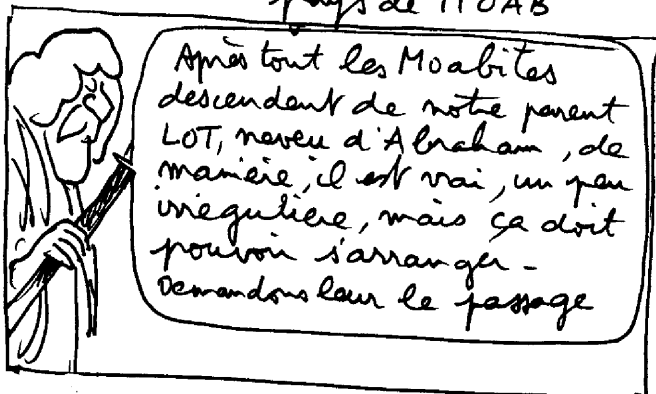 pays de MOAB
Après tout les Moabites
descendent de notre parent
LOT, neveu d'Abraham, de
manière, il est vrai, un peu
irregulière, mais ça doit
pouvoir s'arranger -
Demandons leur le passage